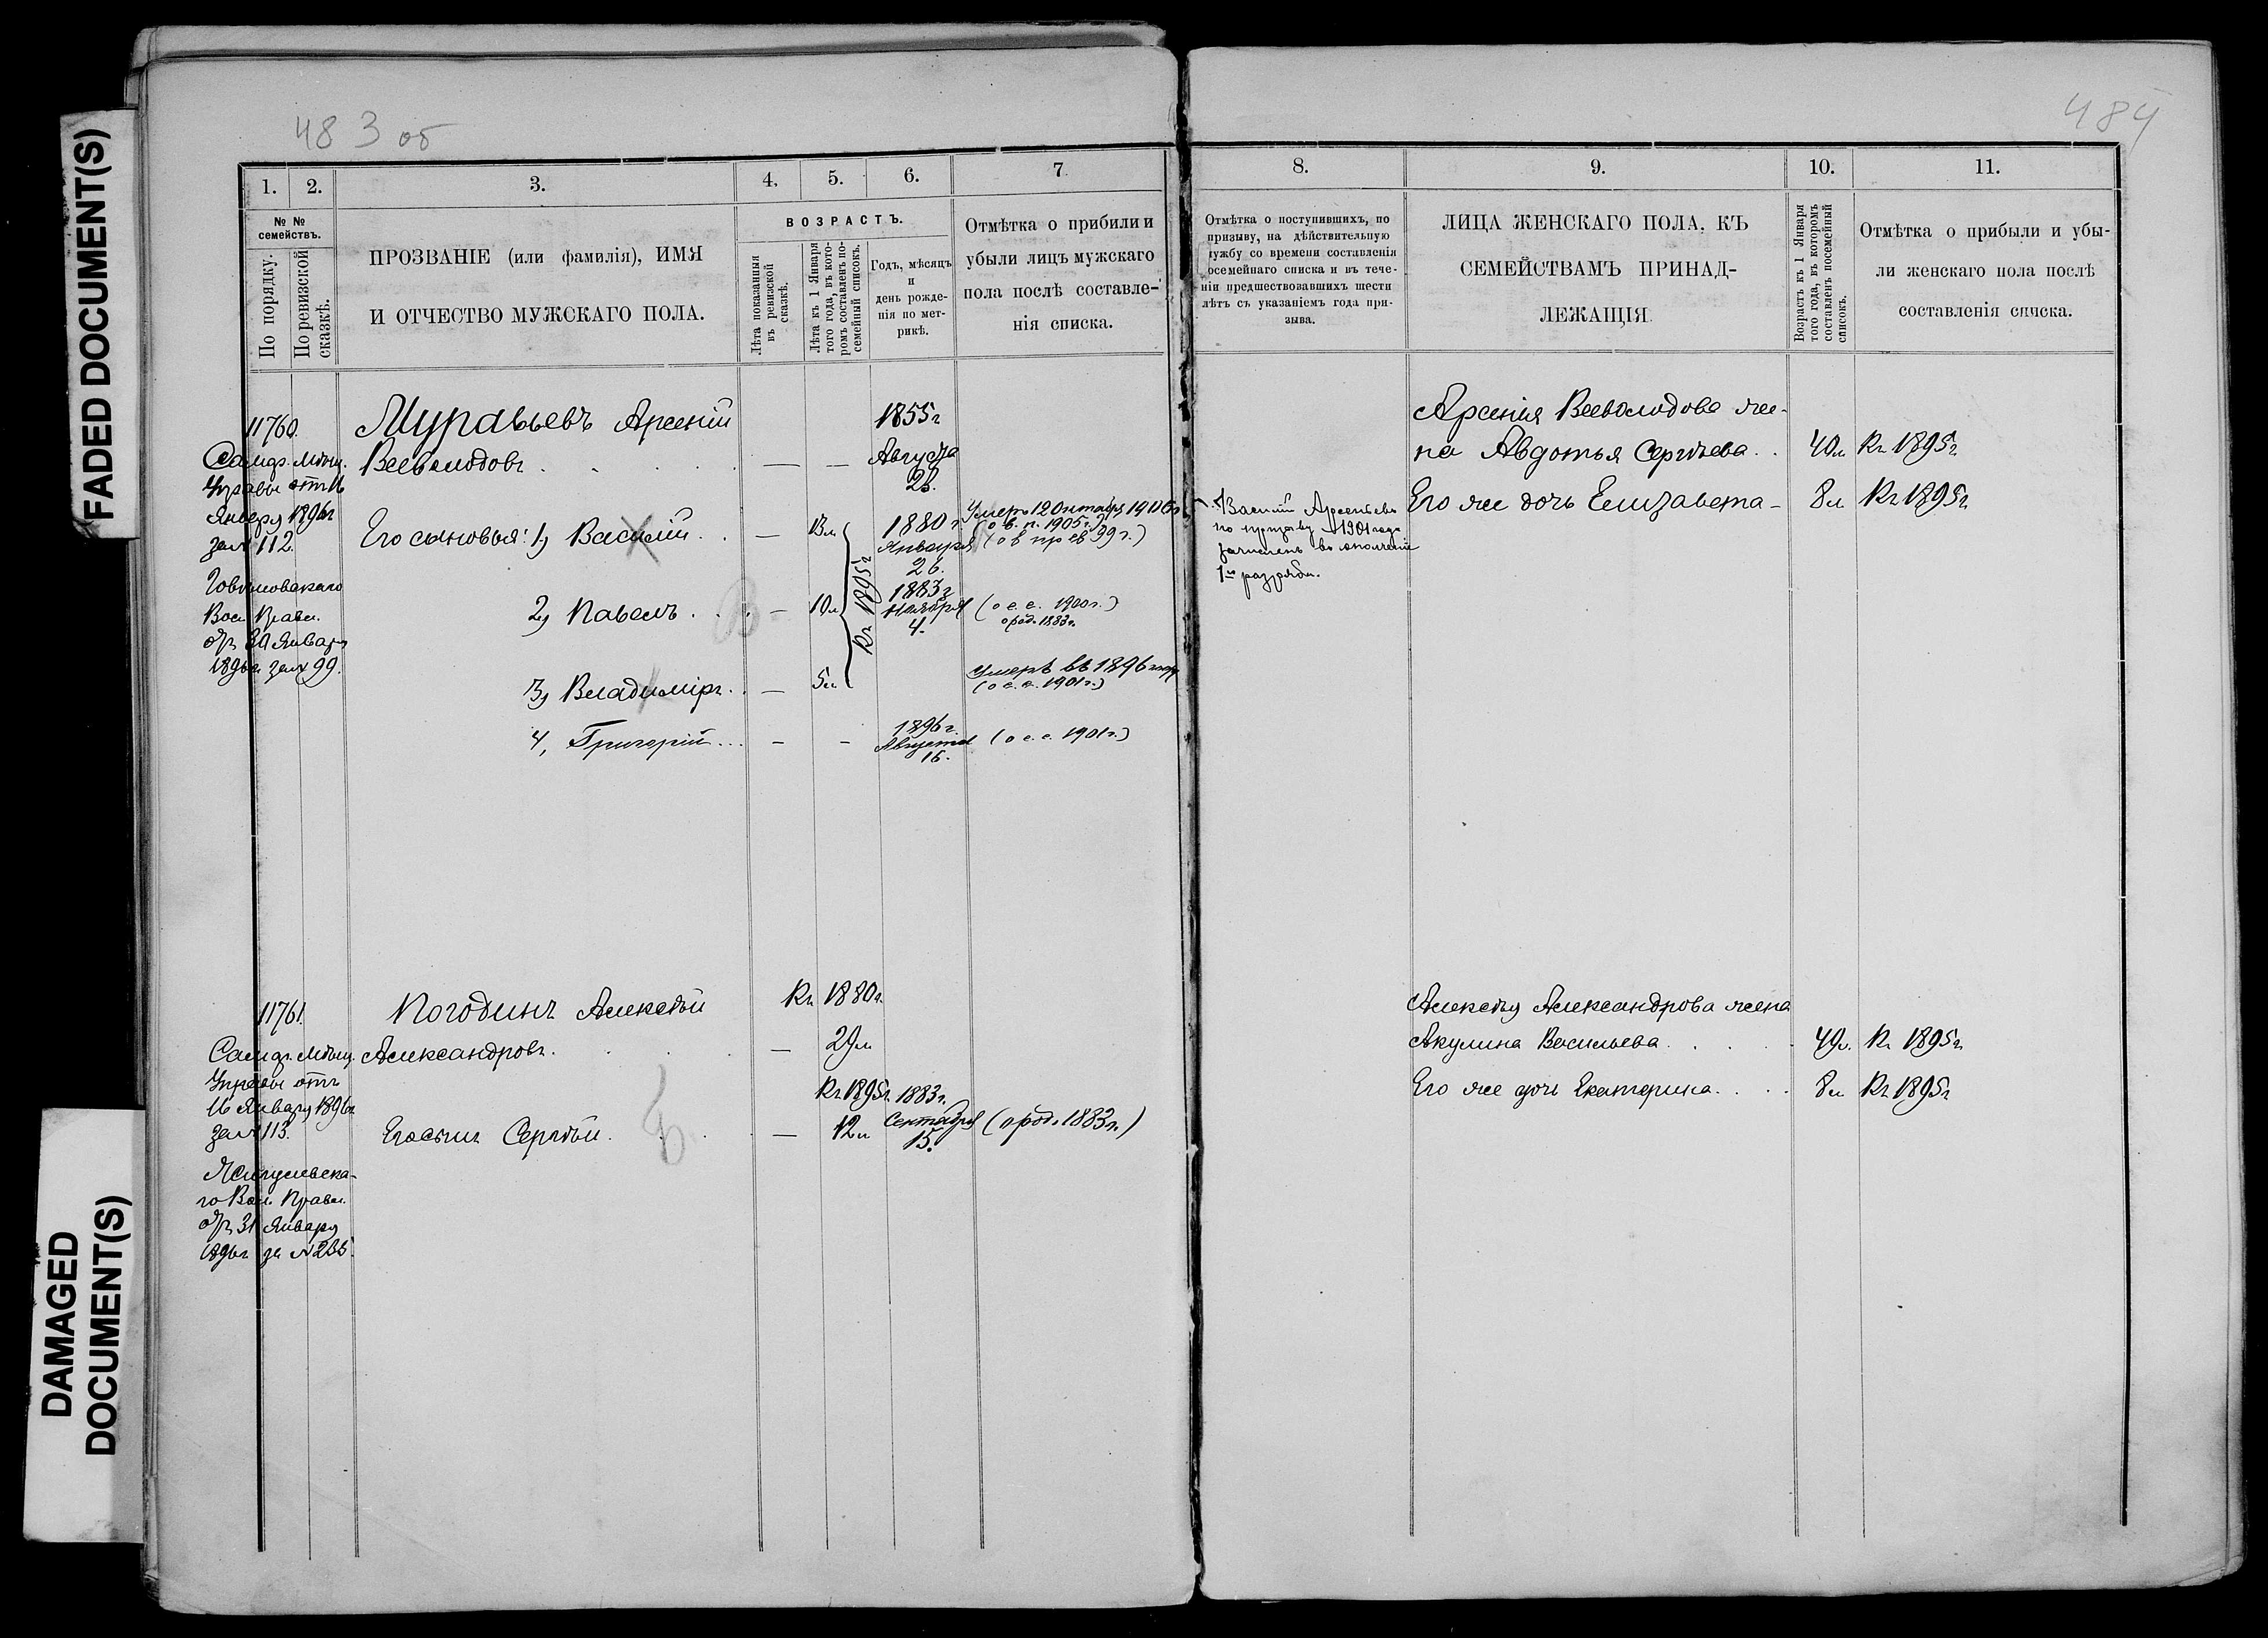 FADED DOCUMENT(S)
DAMAGED
DOCUMENT(S)
483 об
484
1.
2.
3.
4.
5.
6.
7
8.
9.
10.
11.
№ №
семействъ.
По порядку.
По ревизской
сказкѣ.
ПРОЗВАНІЕ (или фамилія), ИМЯ
И ОТЧЕСТВО МУЖСКАГО ПОЛА.
ВОЗРАСТЪ.
Лѣта показанныя
въ ревизской
сказкѣ.
Лѣта къ 1 Января
того года, въ кото-
ромъ составленъ по-
семейный списокъ.
Годъ, мѣсяцъ
и
день рожде-
нія по мет-
рикѣ.
Отмѣтка о прибили и
убыли лицъ мужскаго
пола послѣ составле-
нія списка.
Отмѣтка о поступившихъ, по
призыву, на дѣйствительную
лужбу со времени составленія
осемейнаго списка и въ тече-
ніи предшествовавшихъ шести
лѣтъ съ указаніемъ года при-
зыва.
ЛИЦА ЖЕНСКАГО ПОЛА, КЪ
СЕМЕЙСТВАМЪ ПРИНАД-
ЛЕЖАЩІЯ
Возрастъ къ 1 Января
того года, въ которомъ
составленъ посемейный
списокъ.
Отмѣтка о прибыли и убы-
ли женскаго пола послѣ
составленія списка.
11760.
Самар. мѣщ.
Управы отъ 16
Января 1896г
за № 112.
Вол. Правл.
отъ 30 Января
1896г. за № 99.
Муравьевъ Арсеній
Всеволодовъ . . . . . — —
1855г
Августа
28.
Его сыновья: 1, Василій . . — 13л
1880 г.
Января
26.
Умеръ 12 Октября 1906г
(о в. п. 1905г.)
2, Павелъ . . . — 10л
1883г
Ноября
4.
(о с. с. 1900г.)
о род. 1883г.
3, Владиміръ . . — 5л
Къ 1895г
Умеръ въ 1896 году
(о с. с. 1901г.)
4, Григорій . . . — —
1896г.
Августа
16.
(о с. с. 1901г.)
Василій Арсентьевъ
по призыву 1901 года
зачисленъ въ ополченіе
1го разряда.
Арсенія Всеволодова же-
на Авдотья Сергѣева . . 40л Къ 1895г
Его же дочь Елизавета — 8л Къ 1895г
11761.
Самар. мѣщ.
Управы отъ
16 Января 1896г
за № 113.
го Вол. Правл.
отъ 31 Января
1896г за №
Погодинъ Алексѣй
Александровъ . . . — 
Къ 1880г.
29л
Его сынъ Сергѣй . . . — 
Къ 1895г.
12л
1883г.
Сентября
15.
(о род. 1883г.)
Алексѣя Александрова жена
Акулина Васильева . . . 49л. Къ 1895г
Его же дочь Екатерина . . . 8л Къ 1895г